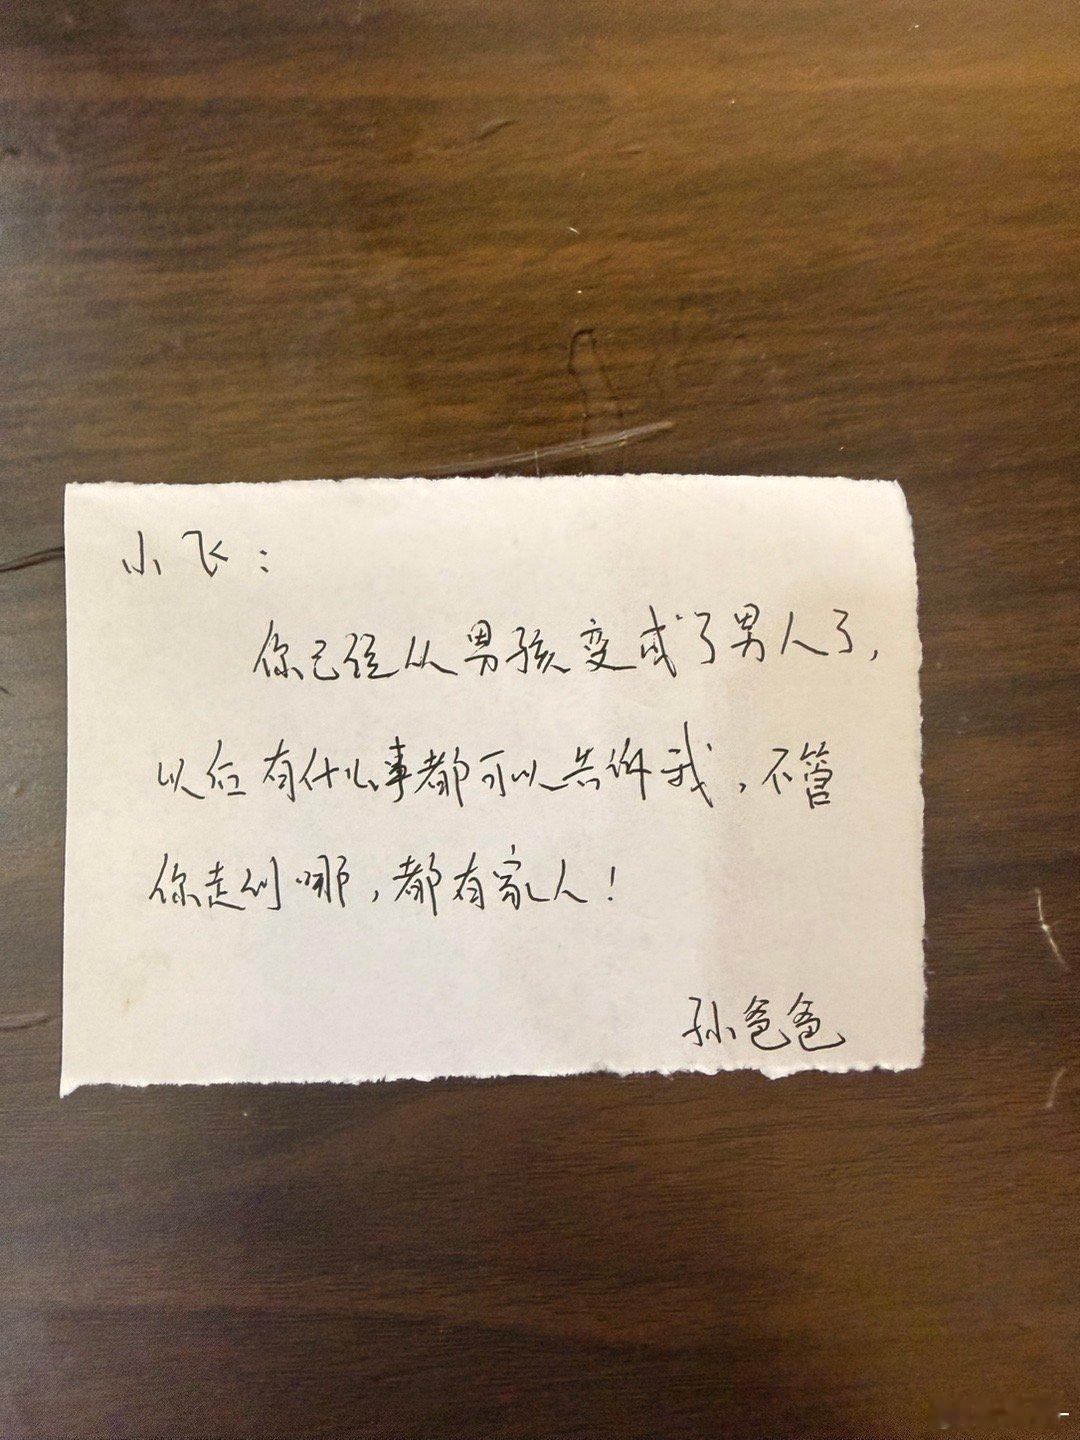 小飞：
你已经从男孩变成了男人了，
以后有什么事都可以告诉我，不管
你走到哪，都有家人！
孙爸爸